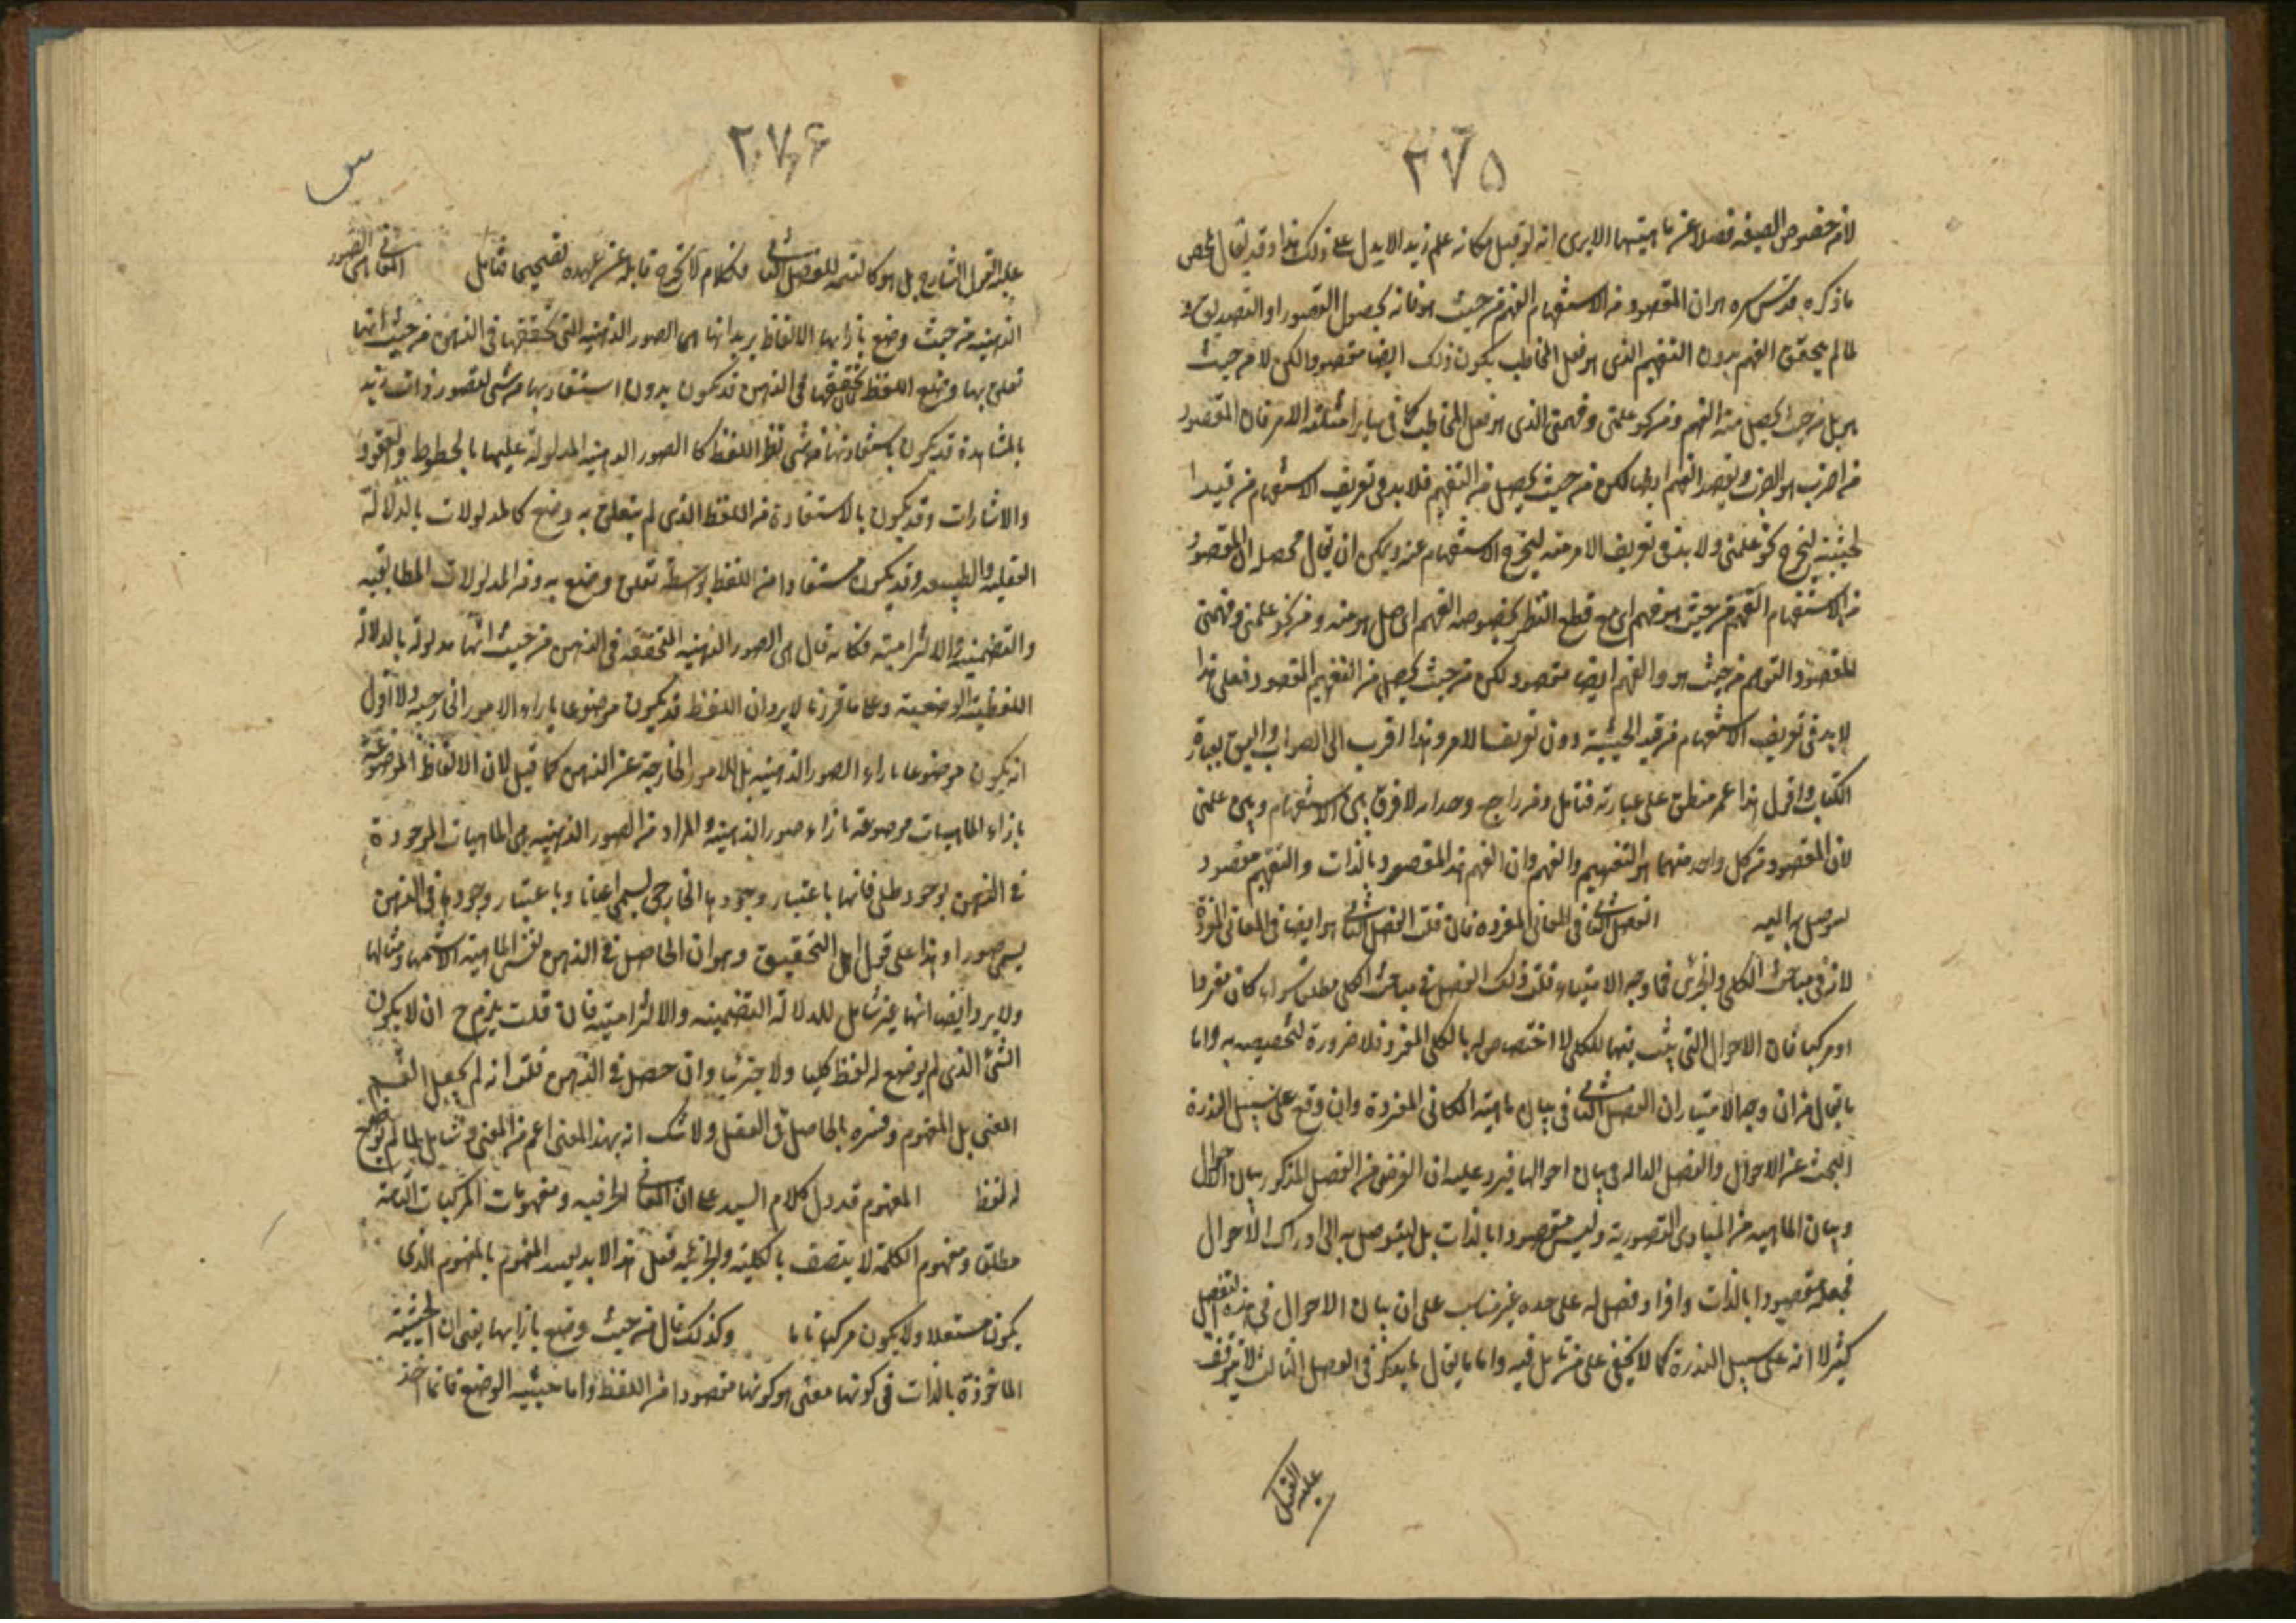 ٢٧۵
لا من خصوص الصيغة فضلا عن ماهيتها الا يرى انه لو قيل مكانه علم زيد الا يدل على ذلك هذا وقد يقال ملخص
ما ذكره قدس سره هو ان المقصود من الاستفهام الفهم من حيث هو فانه يحصل التصور او التصديق و
لما لم يتحقق الفهم بدون التفهيم الذى هو فعل المخاطب يكون ذلك ايضا مقصودا لكن لا من حيث
هو بل من حيث يحصل منه الفهم ومن نحو علمنى وفهمنى الذى هو فعل المخاطب كما فى ساير امثلة الامر فان المقصود
من اضرب هو الضرب ويقصد الفهم ايضا لكن من حيث يحصل من التفهيم فلا بد فى تعريف الاستفهام من قيد ا
لحيثية ليخرج نحو علمنى ولا بد فى تعريف الامر منه ليخرج الاستفهام عنه ويمكن ان يقال محصله ان المقصود
من الاستفهام الفهم من حيث هو فهم اى مع قطع النظر بخصوصه الفهم اى صل هو منه ومن نحو علمنى وفهمنى
المقصود التفهيم من حيث هو والفهم ايضا مقصود لكن من حيث يحصل من التفهيم المقصود فعلى هذا
لا بد فى تعريف الاستفهام من قيد الحيثية دون تعريف الامر وهذا اقرب الى الصواب واليق بعبارة
الكتاب واقول هذا غير منطبق على عبارته فتأمل ومن راجع وجدانه لا فرق بين الاستفهام وبين علمنى
لان المقصود من كل واحد منهما هو التفهيم والفهم وان الفهم هذا المقصود بالذات والتفهيم مقصود
ليوصل به اليه الفصل الثانى فى المعانى المفردة فان قلت الفصل الثالث هو ايضا فى المعانى المفردة
لانه فى مباحث الكلى والجزئى فما وجه الامتياز قلت ذلك الفصل فى مباحث الكلى مطلق سواء كان مفردا
او مركبا فان الاحوال التى يثبت فيها للكلى لا اختصاص له بالكلى المفرد فلا ضرورة لتخصيصه به واما
ما يقال من ان وجه الامتياز ان الفصل الثانى فى بيان ماهية المعانى المفردة وان وقع على سبيل الندرة
البحث عن الاحوال والفصل الثالث فى بيان احوالها فيرد عليه ان الغرض من الفصل المذكور بيان الاحوال
وبيان الماهية من المبادى التصورية وليس مقصودا بالذات بل ليتوصل به الى ادراك الاحوال
فجعله مقصودا بالذات وافراد فصل له على حده غير مناسب على ان بيان الاحوال فى هذه الفصل
كثير لا انه على سبيل الندرة كما لا يخفى على من تأمل فيه واما ما يقال ما يذكر فى الفصل الثالث لا يتوقف
عليه القول
٢٧۶
س
عليه القول الشارح بل هو كالتتمه للفصل الثانى فكلام لا يخرج قايله عن عهده تصحيحها فتأمل المعانى هى الصور
الذهنية من حيث وضع بازايها الالفاظ يريد انها هى الصور الذهنية التى تحققها فى الذهن من حيث انها
تعلق بها وضع اللفظ تحققها فى الذهن قد يكون بدون استفادتها من شى كتصور ذات زيد
بالمشاهدة قد يكون باستفادتها من شى غير اللفظ كالصور الذهنية المدلولة عليها بالخطوط والعقود
والاشارات وقد يكون بالاستفادة من اللفظ الذى لم يتعلق به وضع كالمدلولات بالدلالة
العقلية والطبيعه وقد يكون مستفادا من اللفظ بواسطة تعلق وضع به ومن المدلولات المطابقية
والتضمنية والالتزامية فكانه قال هى الصور الذهنية المتحققة فى الذهن من حيث انها مدلولة بالدلالة
اللفظية الوضعية وعلى ما قررنا لا يرد ان اللفظ قد يكون موضوعا بازاء الامور الخارجيه ولا اقول
انه يكون موضوعا بازاء الصور الذهنيه بل للامور الخارجة عن الذهن كما قيل لان الالفاظ الموضوعة
بازاء الماهيات موضوعة بازاء صور الذهنية والمراد من الصور الذهنيه هى الماهيات الموجودة
فى الذهن بوجود ظلى فانها باعتبار وجودها الخارجى يسمى اعيانا وباعتبار وجودها فى الذهن
يسمى صورا وهذا على قول اهل التحقيق وهو ان الحاصل فى الذهن نفس الماهية لا شبحها ومثالها
ولا يرد ايضا انها غير شامل للدلالة التضمينه والالتزامية فان قلت يلزم ح ان لا يكون
الشئ الذى لم يوضع له لفظ كليا ولا جزئيا وان حصل فى الذهن قلت انه لم يجعل القسم
المعنى بل المفهوم وفسره بالحاصل فى العقل ولا شك انه بهذا المعنى اعم من المعنى وشامل لما لم يوضع
له لفظ المفهوم قد دل كلام السيد على ان المعانى الحرفيه ومفهومات المركبات التامة
مطلق ومفهوم الكلمة لا يتصف بالكلية والجزئية فعلى هذا لا بد تقييد المفهوم بالمفهوم الذى
يكون مستقلا ولا يكون مركبا تاما وكذلك قال من حيث وضع بازايها يعنى ان الحيثية
الماخوذة بالذات فى كونها معنى هو كونها مقصودا من اللفظ واما حيثيه الوضع فانما اخذ